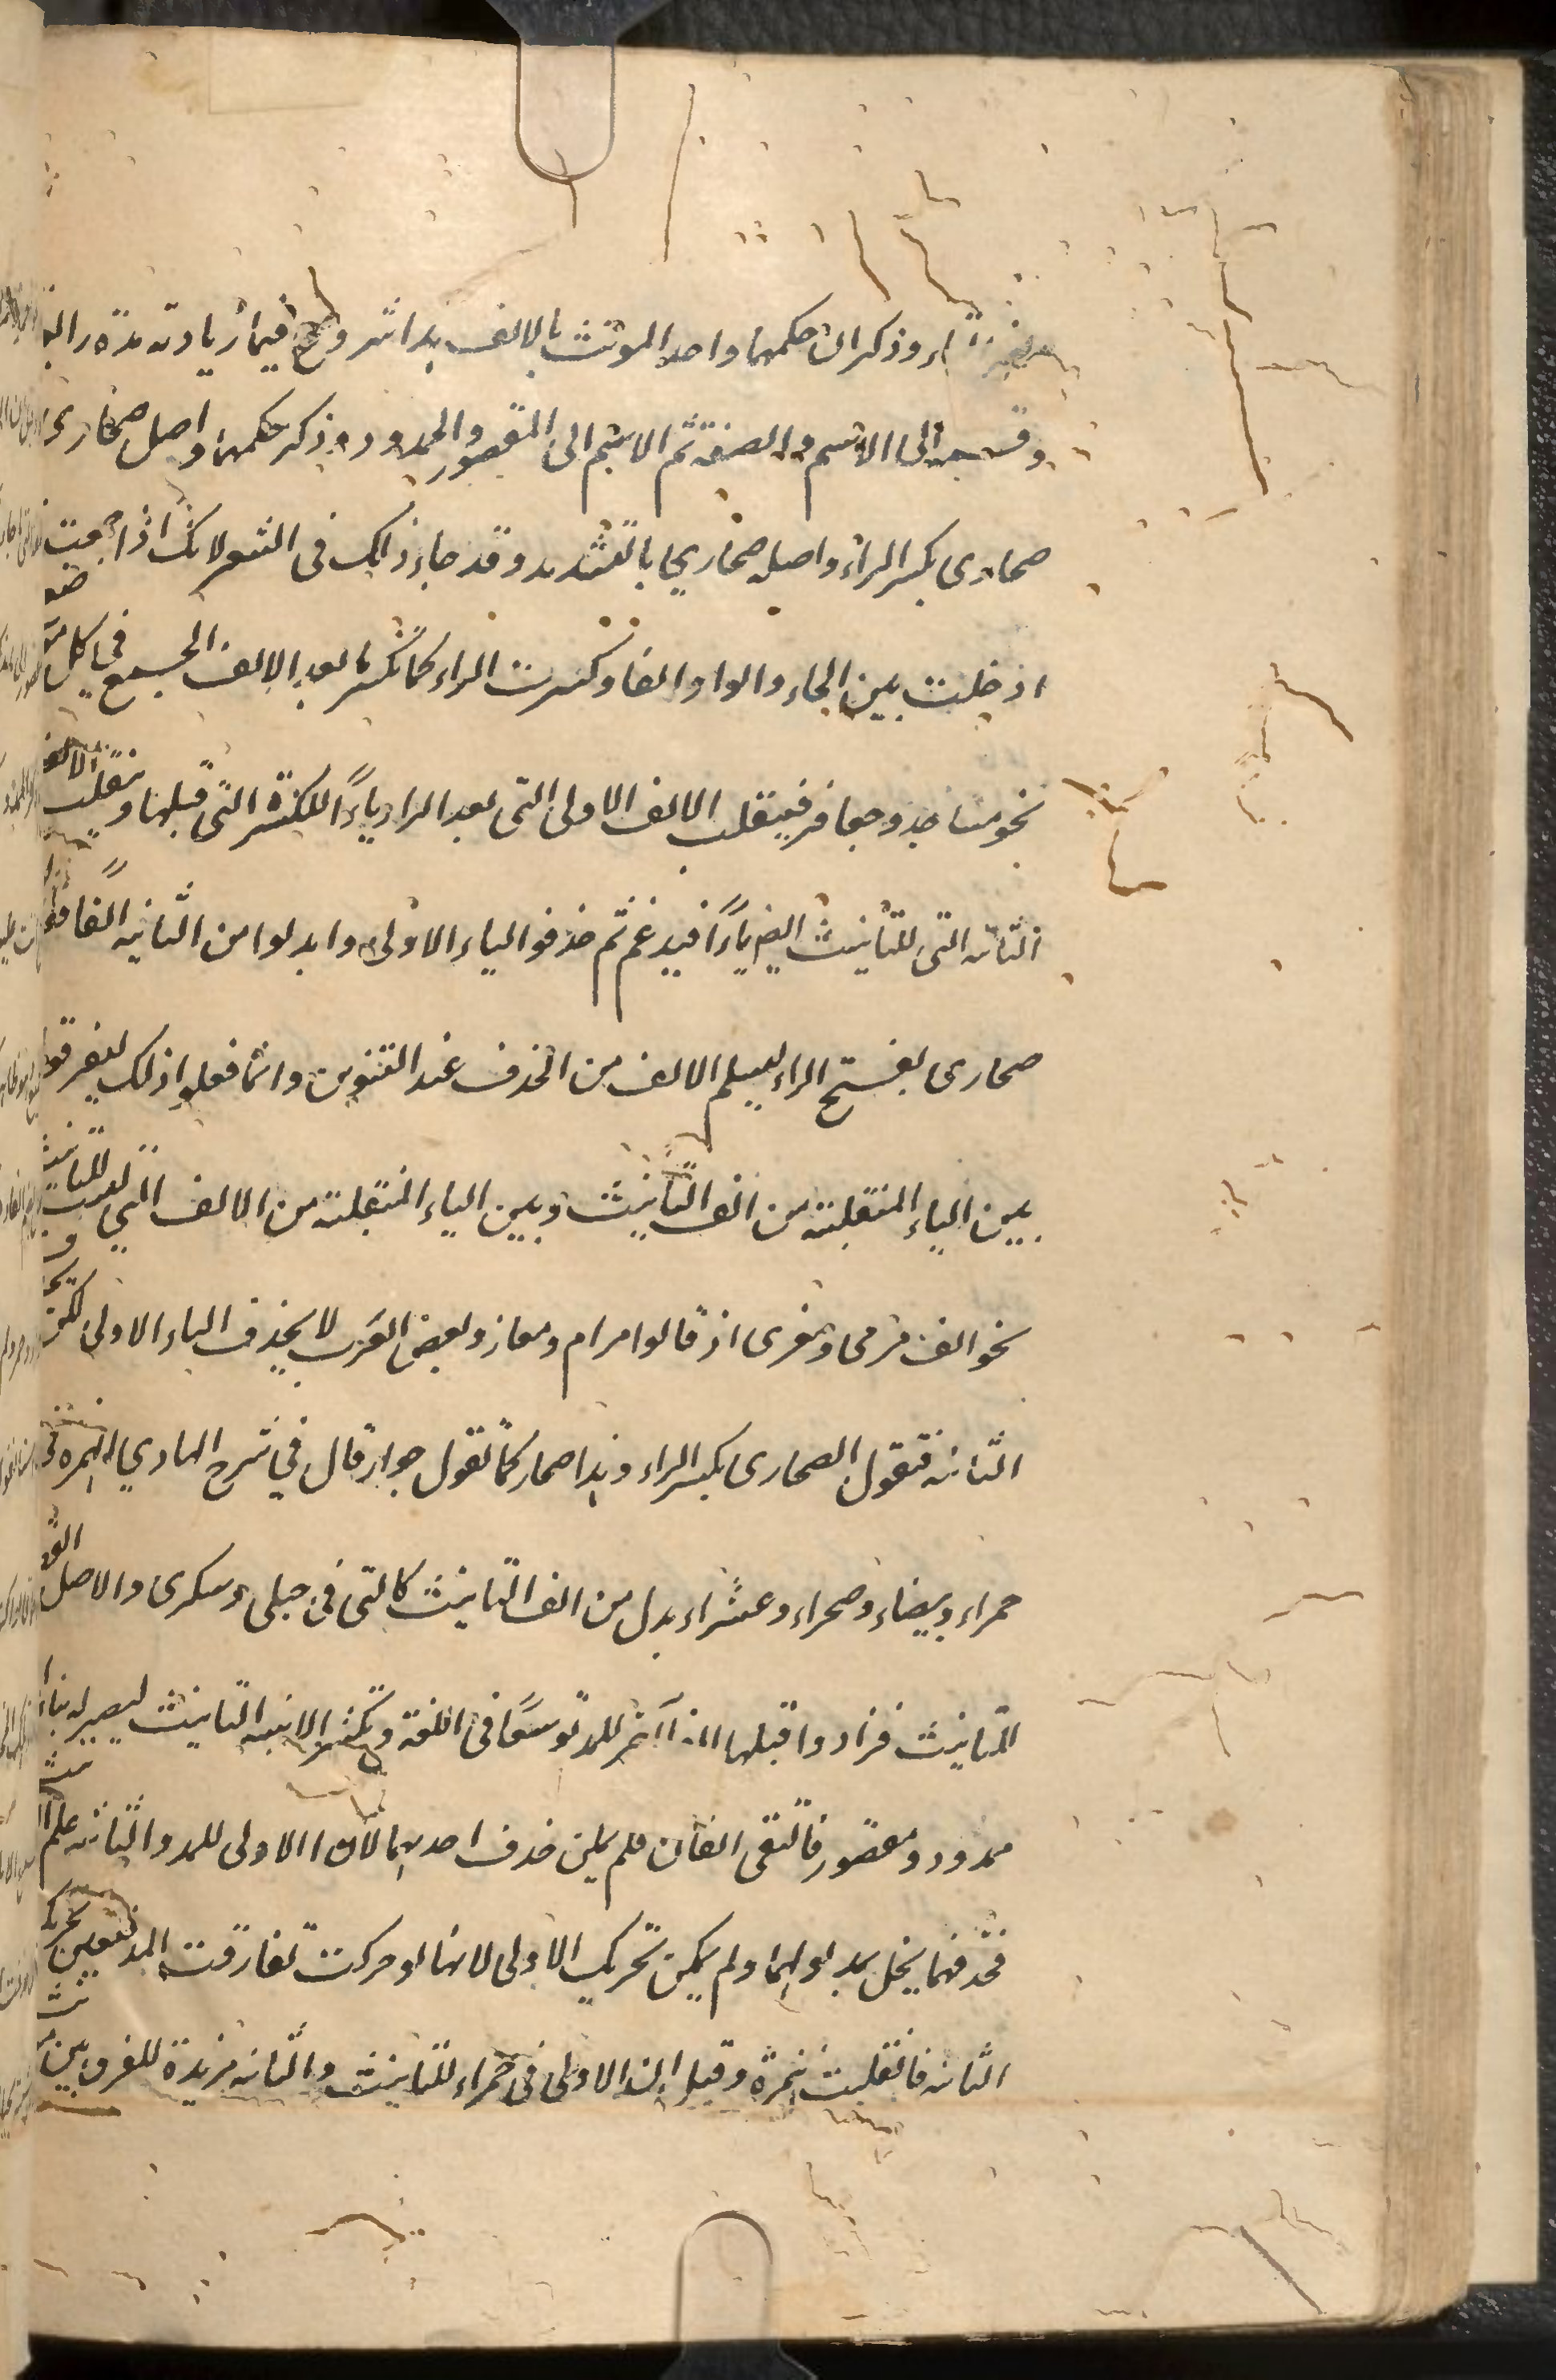 وذكر ان حكمهما واحد المونث بالالف هذا شروع فيما زيادته مدة رابعة
وقسمه الى الاسم والصفة ثم الاسم الى المقصور والممدود وذكر حكمهما واصل صحارى
صحارى بكسر الراء واصله صحاري بالتشديد وقد جاء ذلك فى الشعر لانك اذا جمعت صحراء
ادخلت بين الحاء والراء الفا وكسرت الراء كما تكسر ما بعد الالف الجمع في كل
نحو مساجد وجعافر فينقلب الالف الاولى التى بعد الراء ياءً للكسرة التى قبلها وتنقلب الالف
الثانية التى للتانيث ايضا ياءً فيدغم ثم حذفوا الياء الاولى وابدلوا من الثانية الفا فقالوا
صحارى بفتح الراء ليسلم الالف من الحذف عند التنوين وانما فعلوا ذلك ليفرقوا
بين الياء المنقلبة من الف التانيث وبين الياء المنقلبة من الالف التي ليست للتانيث
نحو الف مرمى ومغزى اذ قالوا مرام ومغاز وبعض العرب لا يحذف الياء الاولى لكن يحذف
الثانية فتقول الصحارى بكسر الراء وهذا صحار كما تقول جوار قال في شرح الهادي الهمزة فى
حمراء وبيضاء وصحراء وعشراء بدل من الف التانيث كالتى فى حبلى وسكرى والاصل الف
التانيث فزادوا قبلها الفا آخر للمد توسعًا فى اللغة وتكثير الابنية التانيث ليصير له بناآن
ممدود ومقصور فالتقى الفان فلم يكن حذف احديهما لان الاولى للمد والثانية علم التانيث
فحذفهما يخل بمدلولهما ولم يمكن تحريك الاولى لانها لو حركت لفارقت المد فتعين تحريك
الثانية فانقلبت همزة وقيل ان الاولى فى حمراء للتانيث والثانية مزيدة للفرق بين